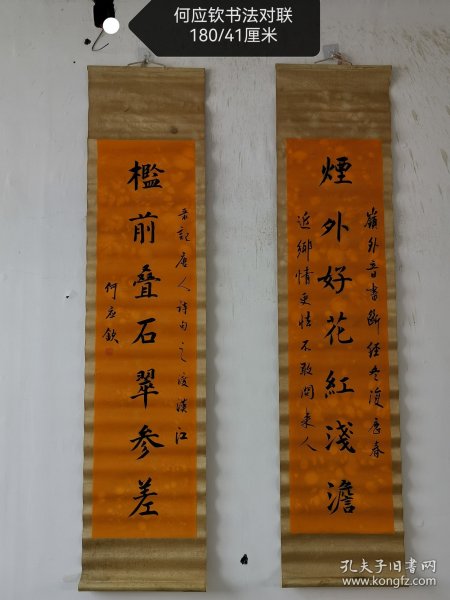 何应钦书法对联
180/41厘米
嶺外音書斷經冬復歷春
煙外好花紅淺澹
近鄉情更怯不敢問来人
記唐人詩句之渡漢江
檻前叠石翠參差
何應欽
孔夫子旧书网
www.kongfz.com